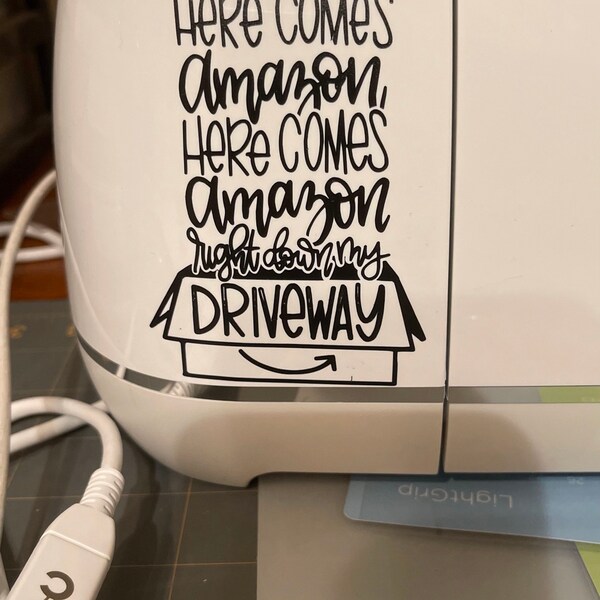 HeRe COMeS
amazon,
HeRe COMeS
amazon
right down my
DRIVeWAY
LightGrip